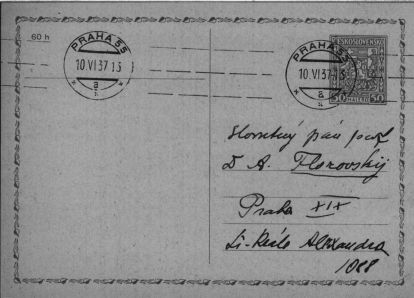 60 h
PRAHA 55
10.VI 37 - 13
a
PRAHA 55
10.VI 37 - 13
a
ČESKOSLOVENSKO
50 HALÉŘŮ 50
Slovutný pán prof
D A. Florovskij
Praha XIX
Alexandra
1088